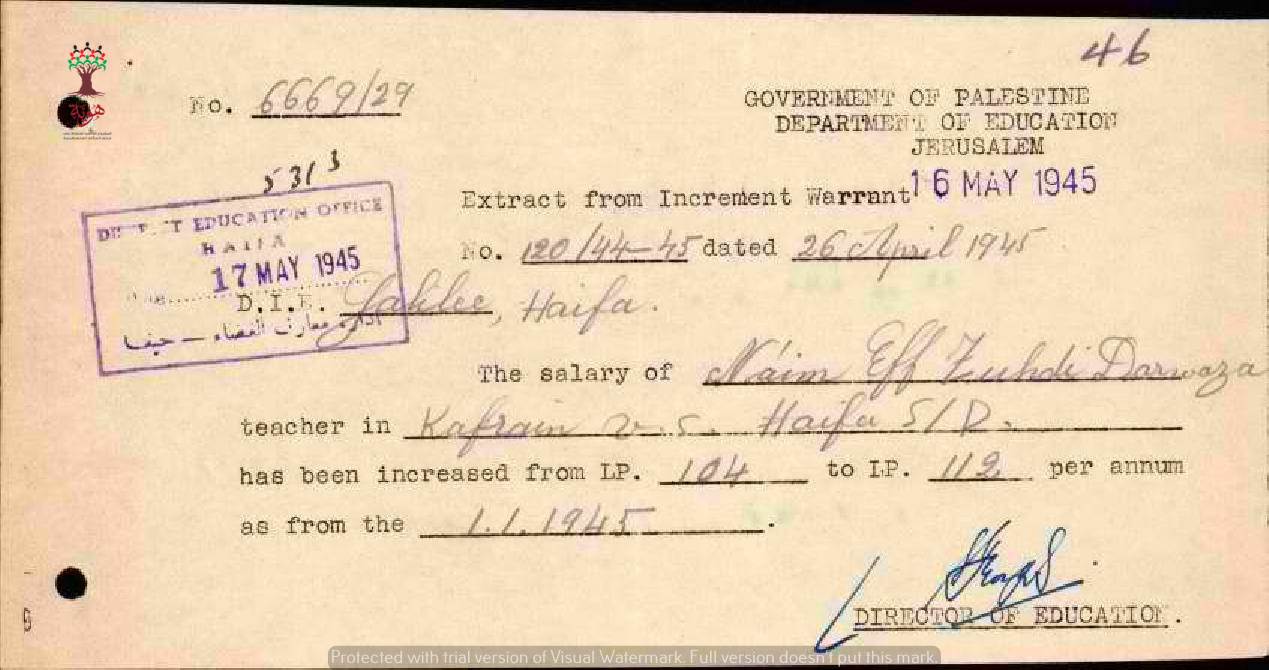 46
No. 6669/29
GOVERNMENT OF PALESTINE
DEPARTMENT OF EDUCATION
JERUSALEM
53/3
16 MAY 1945
Extract from Increment Warrant
No. 120/44-45 dated 26 April 1945
DISTRICT EDUCATION OFFICE
HAIFA
17 MAY 1945
D.I.E. Galilee, Haifa.
ادارة معارف القضاء - حيفا
The salary of Na'im Eff Zuhdi Darwaza
teacher in Kafrain v.s. Haifa S/D.
has been increased from LP. 104 to LP. 112 per annum
as from the 1.1.1945.
DIRECTOR OF EDUCATION.
هوية
Protected with trial version of Visual Watermark. Full version doesn't put this mark.